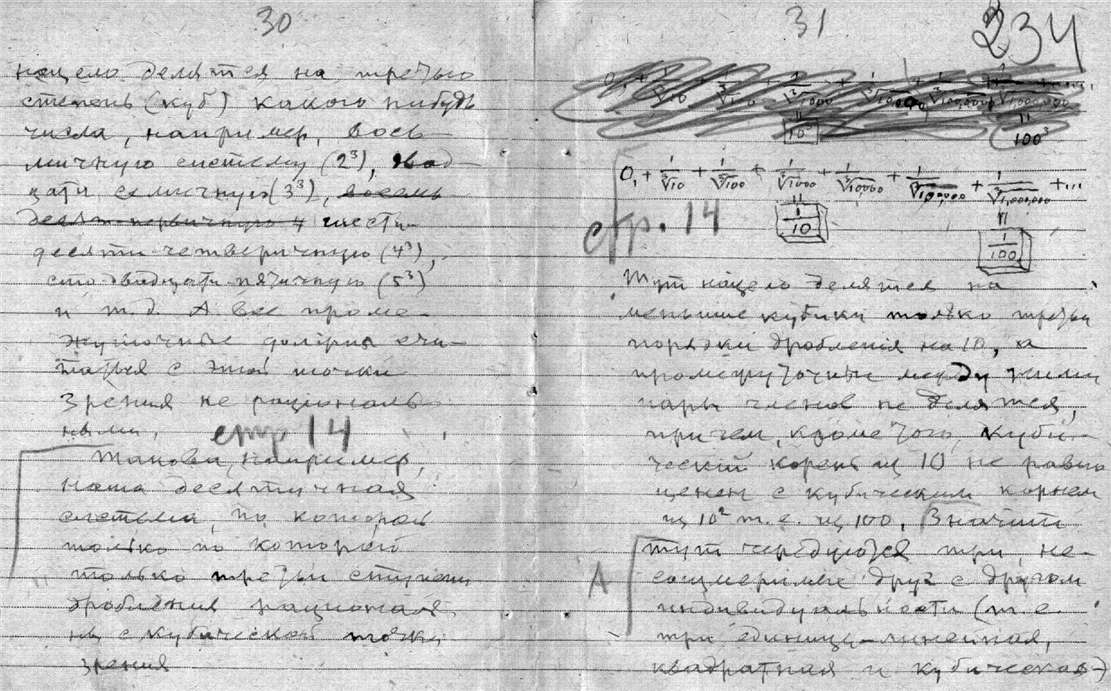 30
нацело делятся на третью
степень (куб) какого нибудь
числа, например, вось
мичную систему (2³), двад
цати семичную (3³), восемь
десят первичную и шести
десяти четверичную (4³),
сто двадцати пятичную (5³)
и т.д. А все проме
жуточные должны счи
таться с этой точки
зрения не рациональ
ными.
стр 14
Такова, например,
наша десятичная
система, по которой
только по которой
только третьи ступени
дробления рациональ
ны с кубической точки
зрения
31
234
100³
0, + 1/∛10 + 1/∛100 + 1/∛1000 + 1/∛10000 + 1/∛100,000 + 1/∛1,000,000 + ...
стр. 14
1/10
1/100
Тут нацело делятся на
меньшие кубики только третьи
порядки дробления на 10, а
промежуточные между ними
пары членов не делятся,
причем, кроме того, куби
ческий корень из 10 не равно
ценен с кубическим корнем
из 10² т.е. из 100. Значит
А
тут чередуются три не
соизмеримые друг с другом
индивидуальности (т.е.
три единицы – линейная,
квадратная и кубическая)